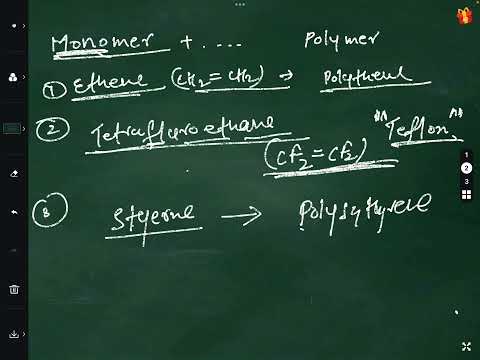 Monomer + .... Polymer
① Ethene (CH2 = CH2) → Polythene
② Tetrafluroethane "Teflon"
(CF2 = CF2)
③ Styerne → Polysythyrene
1
2
3